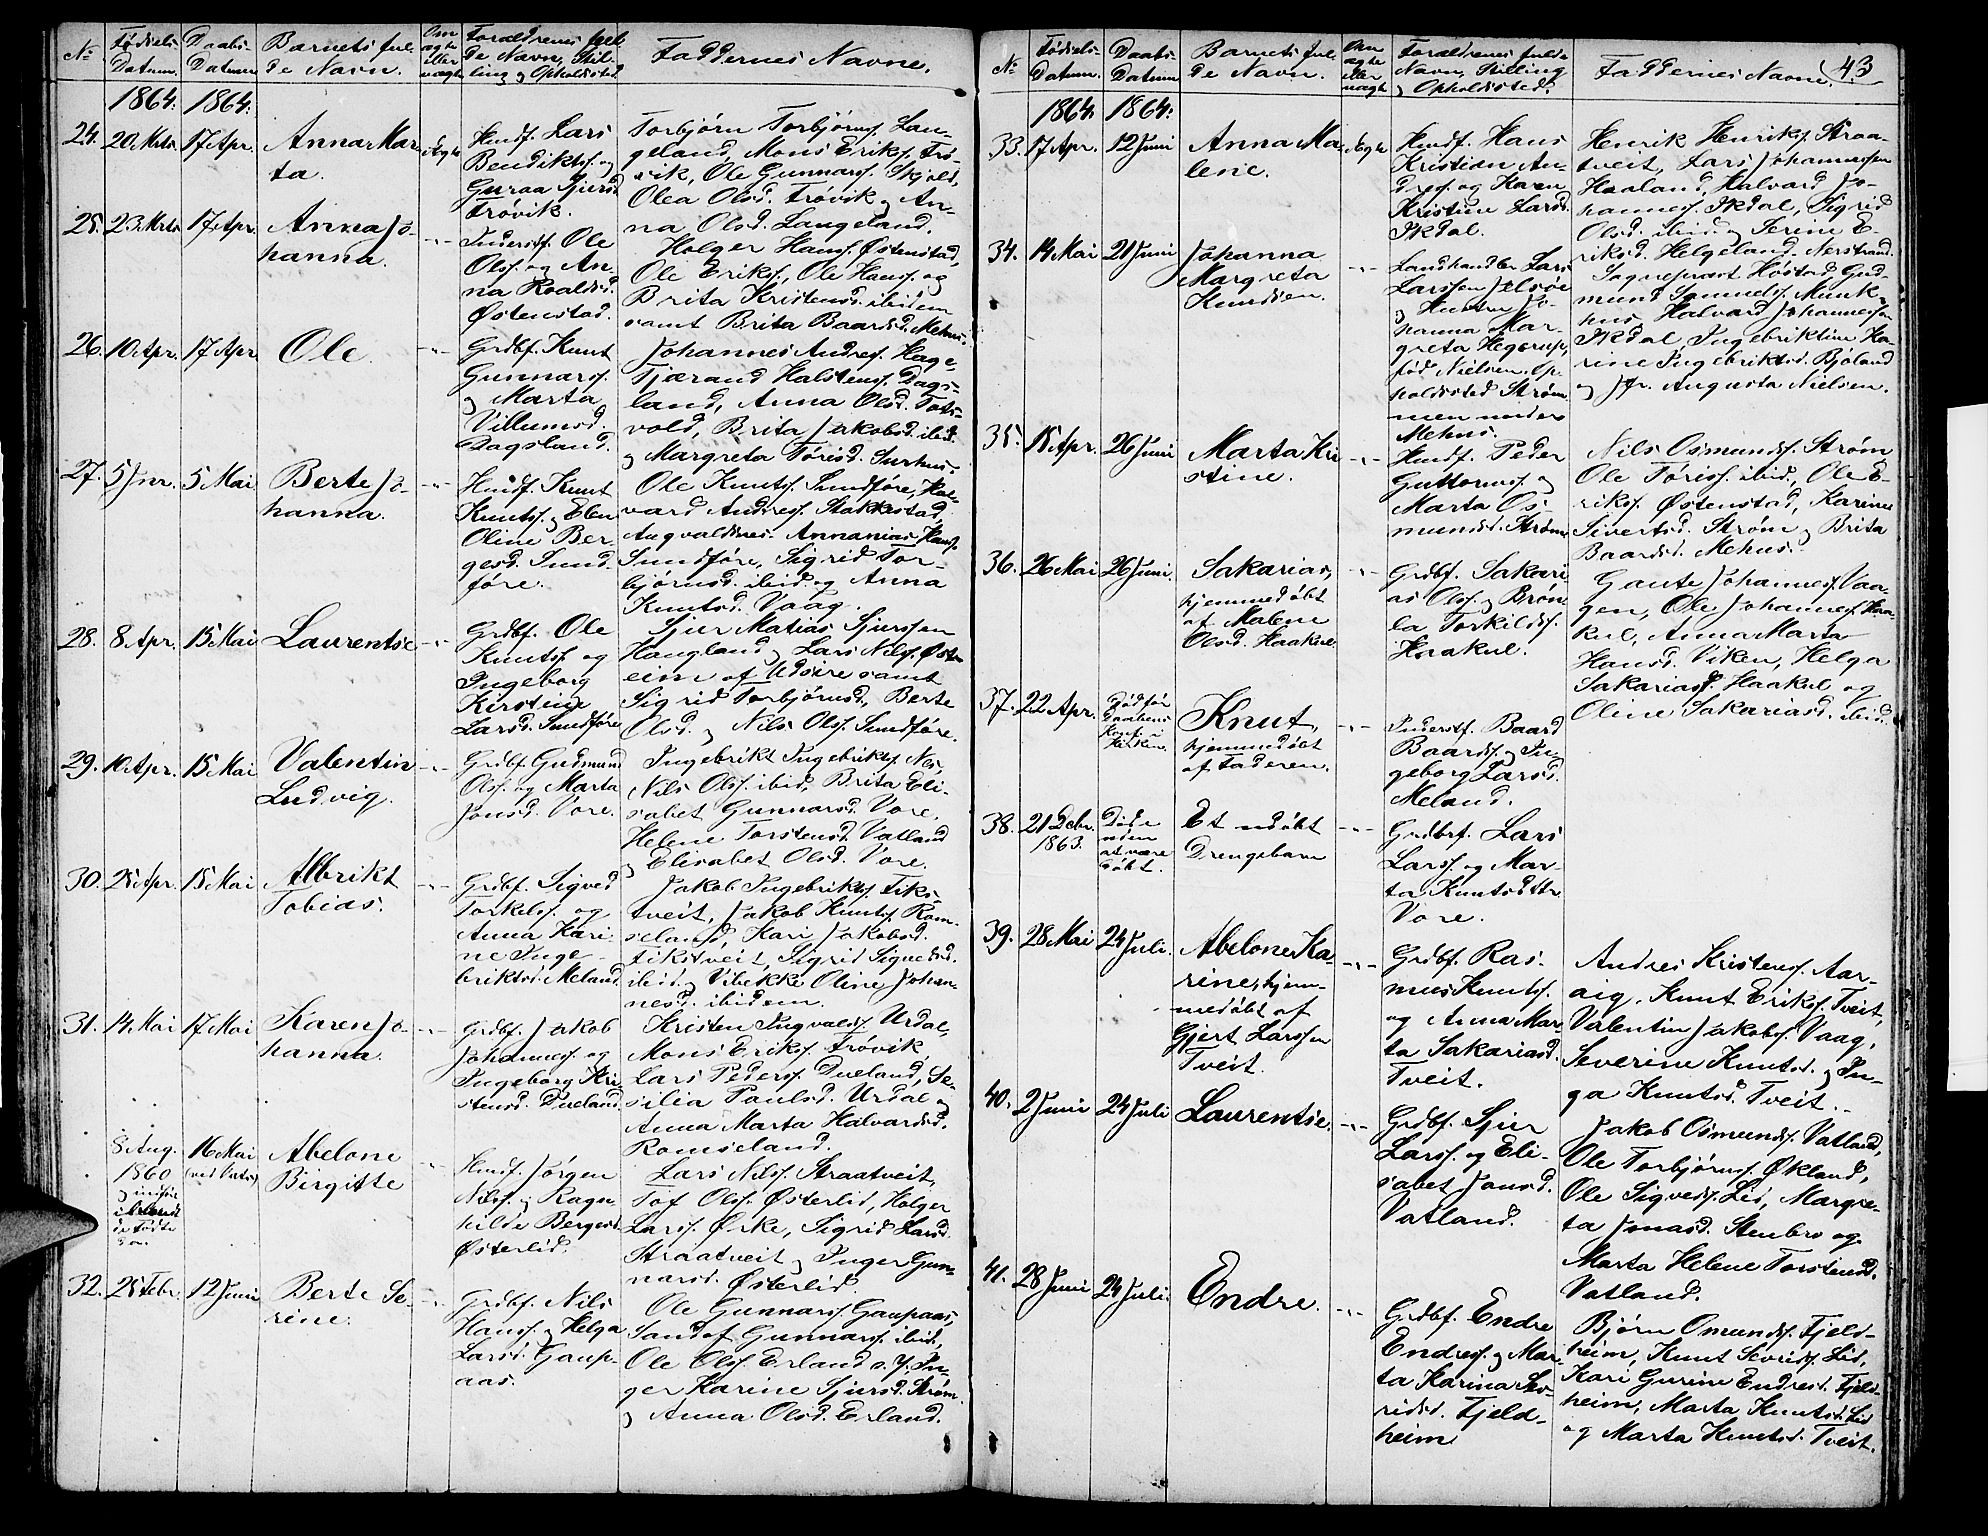 No
Fødsels-
Datum.
Daabs-
Datum
Barnets ful-
de Navn.
Om
ægte
eller
uægte
Forældrenes ful-
de Navn, Stil-
ling og Opholdsted
Faddernes Navne.
1864. 1864.
24. 20 Mrts. 17 Apr. Anna Mar-
ta.
Ægte
Husf. Lars
Bendiktss. og
Guraa Sjursd
Frøvik.
Torbjørn Torbjørns. Lan-
geland, Mons Eriks. Frø-
vik, Ole Gunnars. Skjold,
Olea Olsd. Frøvik og An-
na Olsd. Langeland.
25. 23 Mrts 17 Apr. Anna Jo-
hanna.
-"-
Inderstf. Ole
Olss. og An-
na Roaldsd.
Østenstad.
Holger Hanss. Østenstad,
Ole Erikss., Ole Hanss. og
Brita Kristensd. ibidem
samt Brita Baardsd. Mehus.
26. 10 Apr. 17 Apr. Ole.
-"-
Grdbf. Knut
Gunnarss.
og Marta
Villumsd.
Dagsland.
Johannes Andress. Hage,
Tjærand Halstenss. Dags-
land, Anna Olsd. Tots-
vold, Brita Jakobsd. ibid.
og Margreta Tørisd.
27. 5 Jnr. 5 Mai Berte Jo-
hanna.
-"-
Husf. Knut
Knutss. og Elen
Oline Ber-
gesd. Sund-
føre.
Ole Knutss. Sundføre, Hal-
vard Andress. Stakkestad,
Augvaldsnes. Annanias Hanss.
Sundføre, Sigrid Tor-
bjørnsd. ibid. og Anna
Knutsd. Vaag.
28. 8 Apr. 15 Mai Laurentse
-"-
Grdbf. Ole
Knutss. og
Ingeborg
Kirstine
Larsd. Sundføre
Sjur Matias Sjurssen
Haugland og Lars Nilss. Øst-
eim af Udsire samt
Sigrid Torbjørnsd., Berte
Olsd. og Nils Olss. Sundføre.
29. 10 Apr. 15 Mai Valentin
Ludvig.
-"-
Grdbf. Gudmund
Olss. og Marta
Jonsd. Vore.
Ingebrikt Ingebriktss. Nes,
Nils Olss. ibid, Brita Eli-
sabet Gunnarsd. Vore,
Helene Torstensd. Vatland
og Elisabet Olsd. Vore.
30. 25 Apr. 15 Mai Albrikt
Tobias.
-"-
Grdbf. Sigved
Torkelss. og
Anna Kari-
ne Inge-
briktsd. Meland
Jakob Ingebriktss. Fiks-
tveit, Jakob Knutss. Rom-
seland, Kari Jakobsd.
Fikstveit, Sigrid Sigvedsd.
ibid. og Vibekke Oline Johan-
nesd. ibidem.
31. 14 Mai 17 Mai Karen Jo-
hanna.
-"-
Grdbf. Jakob
Johanness. og
Ingeborg Kri-
stensd. Dueland.
Kristen Ingvaldss. Urdal,
Mons Erikss. Frøvik,
Lars Pederss. Dueland, Se-
silia Paulsd. Urdal og
Anna Marta Halvardsd.
Romseland.
8 Aug.
1860
16 Mai
Abelone
Birgitte
-"-
Husf. Jørgen
Nilss. og Ragn-
hilde Bergesd
Østerlid.
Lars Nilss. Straatveit,
Tof Olss. Østerlid, Holger
Larss. Ørke, Sigrid Larsd.
Straatveit og Inger Gun-
narsd. Østerlid.
32. 25 Febr. 12 Juni Berte Se-
rine.
-"-
Grdbf. Nils
Hanss. og Helga
Larsd. Gaup-
aas.
Ole Gunnarss. Gaupaas,
Sandof Gunnarss. ibid,
Ole Olss. Erland s. J. In-
ger Karine Sjursd. Strøm
og Anna Olsd. Erland.
No
Fødsels-
Datum.
Daabs-
Datum
Barnets ful-
de Navn.
Om
ægte
eller
uægte
Forældrenes fulde
Navn, Stilling
og Opholdsted.
Faddernes Navne. 43
1864. 1864.
33. 17 Apr. 12 Juni Anna Ma-
lene.
Ægte
Husf. Hans
Kristian An-
dress. og Karen
Kristine Larsd.
Skdal.
Henrik Henrikss. Straa-
tveit, Lars Johannessen
Haaland, Halvard Jo-
hanness. Skdal, Sigrid
Olsd. ibid. og Serine E-
riksd. Helgeland. Nerstrand.
34. 14 Mai 21 Juni Johanna
Margreta
Knudsen.
-"-
Landhandler Lars
Larssen Jelsøe
og Hustru Jo-
hanna Mar-
greta Hegerup,
fød Nielsen, Op-
holdssted Strøm-
men under
Mehus.
Sogneprest Høstad, Gud-
mund Samuelss. Munk-
hus, Halvard Johannessen
Skdal, Ingebriktine Ka-
rine Ingebriktsd. Bjøland
og Jfr. Augusta Nielsen.
35. 15 Apr. 26 Juni Marta Kri-
stine.
-"-
Husf. Peder
Guttormss. og
Marta Os-
mundsd. Strøm
Nils Osmundss. Strøm
Ole Tøriss. ibid., Ole E-
rikss. Østenstad, Karine
Sivertsd. Strøm og Brita
Baardsd. Mehus.
36. 26 Mai 26 Juni. Sakarias,
hjemmedøbt
af Malene
Olsd. Haakul.
-"-
Grdbf. Sakari-
as Olss. og Brøn-
la Torkildsd.
Haakul.
Gaute Johanness. Vaa-
gen, Ole Johanness. Haa-
kul, Anna Marta
Hansd. Viken, Helga
Sakariasd. Haakul og
Oline Sakariasd. ibid.
37. 22 Apr. Død før
Knut,
hjemmedøbt
af Faderen.
-"-
Inderstf. Baard
Baardss. og In-
geborg Larsd.
Meland.
38. 21 Debr.
1863.
Døde
uden
at være
døbt.
Et udøbt
Drengebarn
-"-
Grdbrf. Lars
Larss. og Mar-
ta Knutsdttr.
Vore.
39. 28 Mai 24 Juli. Abelone Ka-
rine, hjem-
medøbt af
Gjert Larssen
Tveit.
-"-
Grdbf. Ras-
mus Knutss.
og Anna Mar-
ta Sakariasd.
Tveit.
Andres Kristenss. Aar-
aig, Knut Erikss. Tveit,
Valentin Jakobss. Vaag,
Severine Knutsd. og In-
ga Knutsd. Tveit.
40. 2 Juni 24 Juli Laurentse.
-"-
Grdbf. Sjur
Larss. og Eli-
sabet Jonsd.
Vatland.
Jakob Osmundss. Vatland,
Ole Torbjørnss. Økland,
Ole Sigvedss. Lid, Margre-
ta Jonasd. Stenbro og
Marta Helene Torstensd.
Vatland.
41. 28 Juni 24 Juli. Endre.
-"-
Grdbf. Endre
Endress. og Mar-
ta Karina Sev-
ridsd. Fjeld-
heim
Bjørn Omundss. Fjeld-
heim, Knut Sevridss. Lid,
Kari Gurine Endresd. Fjeld-
heim, Marta Knutsd. Lid
og Marta Knutsd. Tveit.